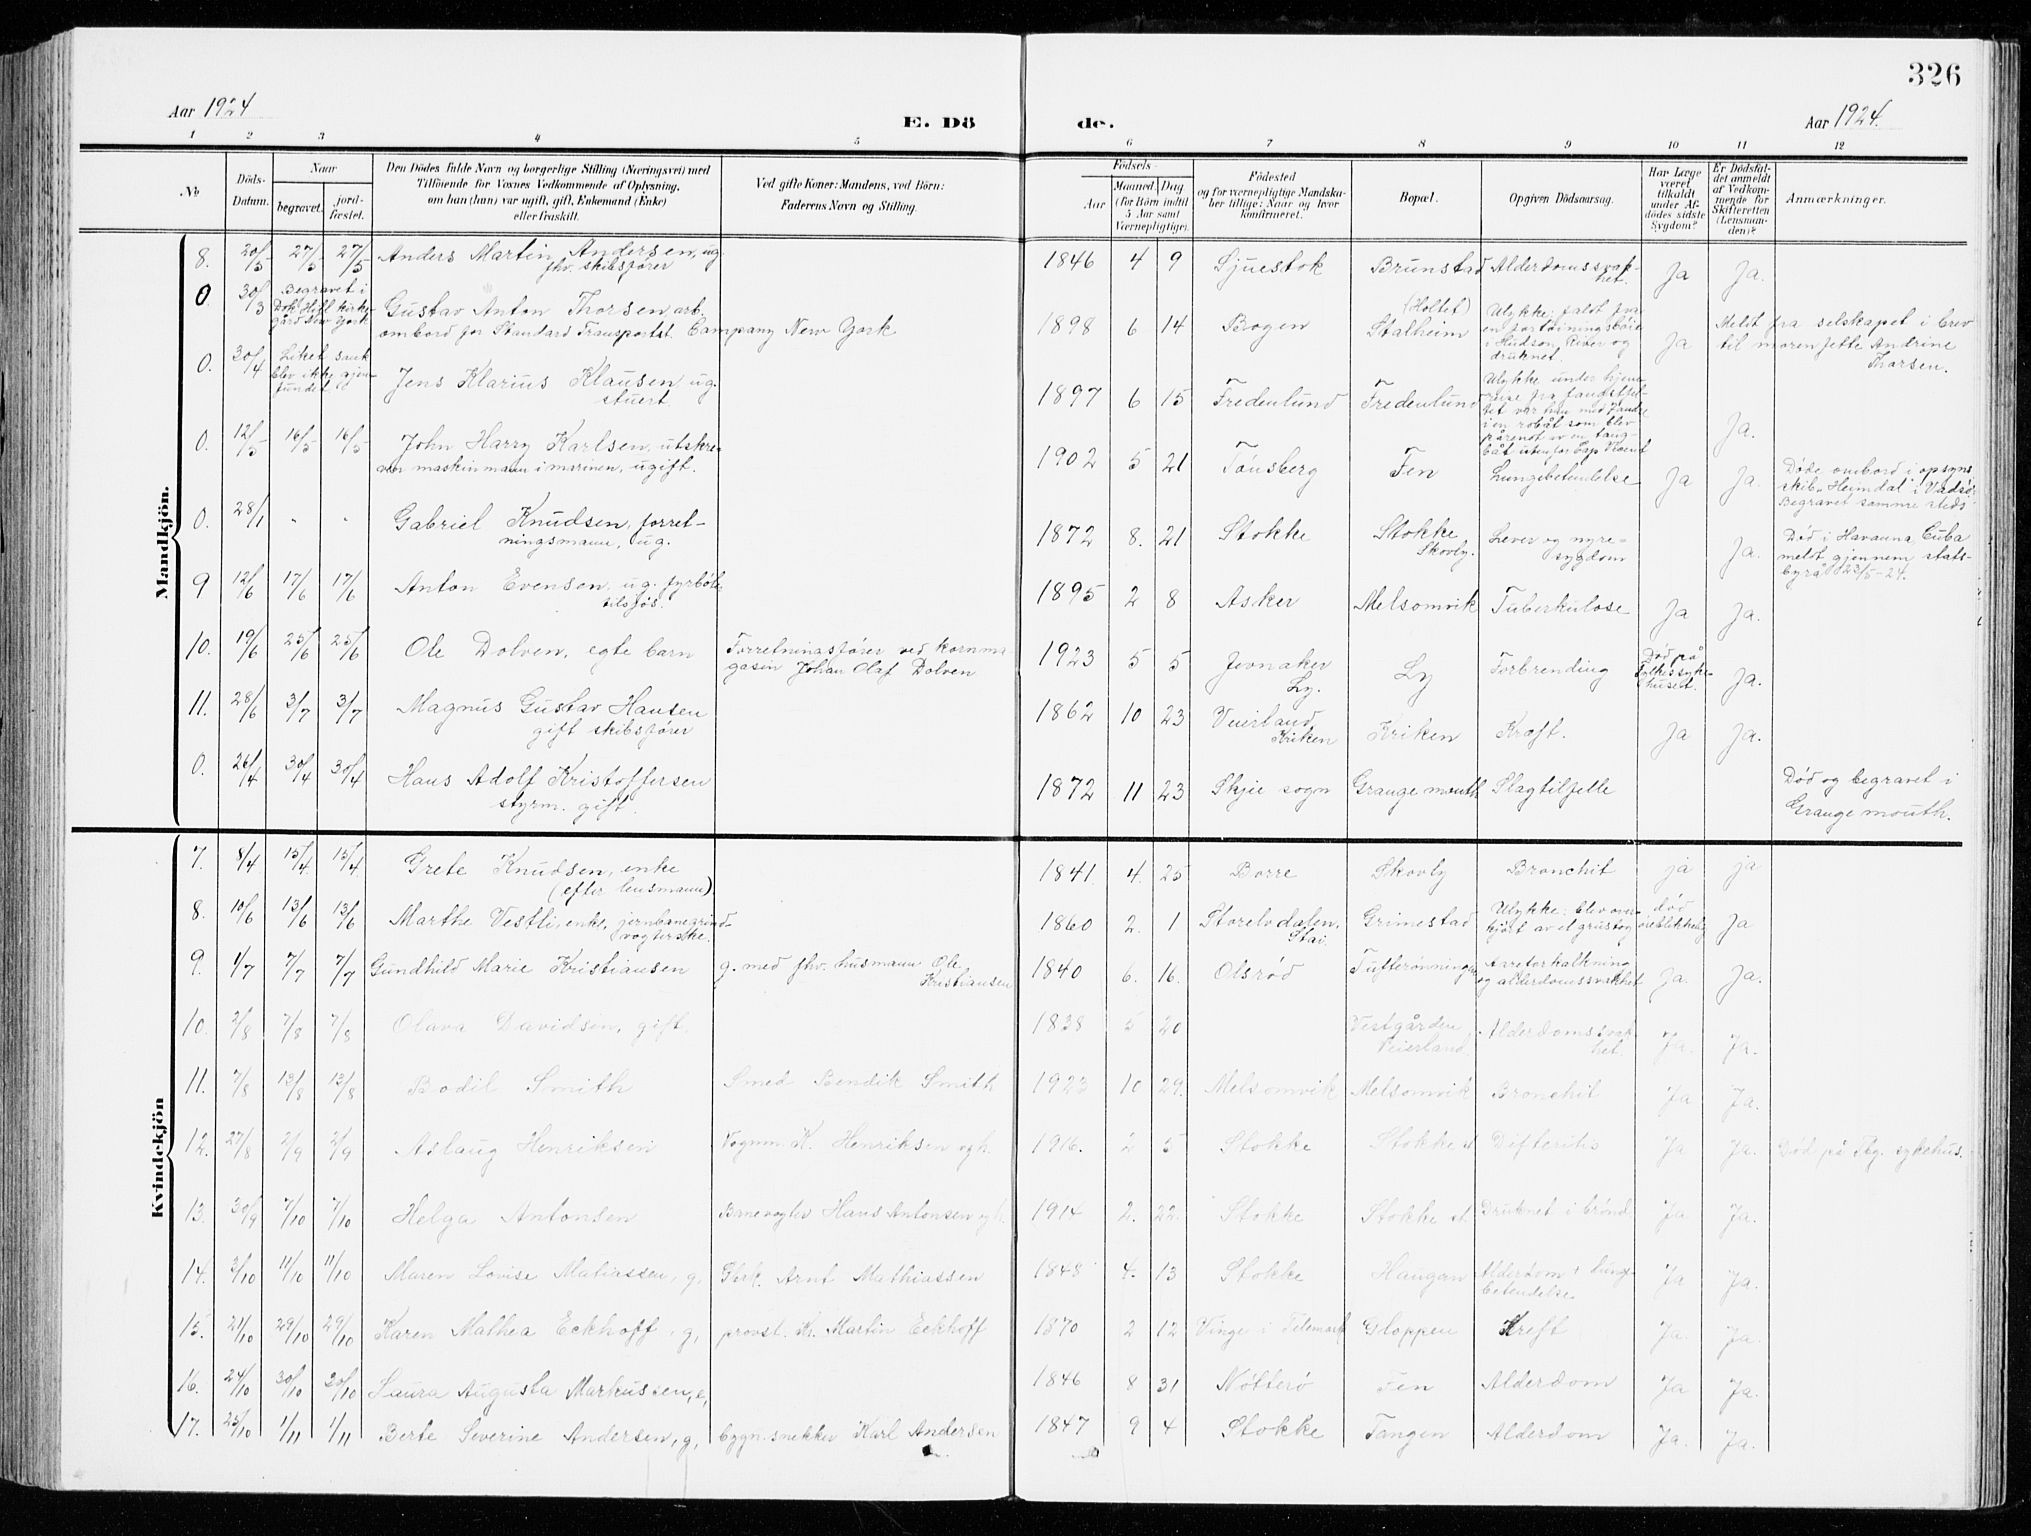 326
Aar 1924
E. Dö
de.
Aar 1924.
1 2 3 4 5 6 7 8 9 10 11 12
No
Döds-
Datum.
Naar
begravet.
jord-
fæstet.
Den Dödes fulde Navn og borgerlige Stilling (Næringsvei) med
Tilföiende for Voxnes Vedkommende af Oplysning,
om han (hun) var ugift, gift, Enkemand (Enke)
eller fraskilt.
Ved gifte Koner: Mandens, ved Börn:
Faderens Navn og Stilling.
Födsels-
Aar
Maaned. Dag
(for Börn indtil
5 Aar samt
Værnepligtige).
Födested
og for værnepligtige Mandska-
ber tillige: Naar og hvor
konfirmeret.
Bopæl.
Opgiven Dödsaarsag.
Har Læge
været
tilkaldt
under Af-
dödes sidste
Sygdom?
Er Dödsfal-
det anmeldt
af Vedkom-
mende for
Skifteretten
(Lensman-
den)?
Anmærkninger.
Mandkjön.
8. 20/5 27/5 27/5 Anders Martin Andersen, ug.
fhv. skibsfører
1846 4 9 Sjuestok Brunstad Alderdomssvak-
het. Ja Ja.
0 30/3 Begravet i
kirke-
gård New York
Gustav Anton Thorsen, arb.
ombord for Standard Transportst. Company New York
1898 6 14 Bogen (Holtet)
Stalheim
Ulykke: faldt fra
en fortøiningsbøie
i Hudson River og
druknet.
Ja
Meldt fra selskapet i brev
til moren Jette Andrine
Thorsen.
0. 30/4 Liket sank
blev ikke gjen-
fundet
Jens Klarius Klausen, ug.
stuert
1897 6 15 Fredenlund Fredenlund
Ulykke under hjem-
reise fra fangstfel-
tet var han med
i en robåt som blev
pårendt av en fang-
båt utenfor Cap Vincent
Ja.
0. 12/5 16/5 16/5 John Harry Karlsen, utskre-
ven maskinmann i marinen, ugift.
1902 5 21 Tønsberg Fen Lungebetendelse Ja Ja.
Døde ombord i opsyns
skib "Heimdal" i Vadsø.
Begravet samme steds.
0. 28/1 " " Gabriel Knudsen, forret-
ningsmann, ug.
1872 8. 21 Stokke Stokke
Skovly.
Lever og nyre-
sygdom
Ja.
Død i Havanna, Cuba
meldt gjennem stats-
byrå 23/5-24.
9 12/6 17/6 17/6 Anton Evensen, ug. fyrbøter
tilsjøs.
1895 2 8 Asker Melsomvik Tuberkulose Ja Ja.
10. 19/6 25/6 25/6 Ole Dolven, egte barn
Forretningsfører ved kornma-
gasin Johan Olaf Dolven
1923 5 5 Jevnaker
Ly.
Ly Forbrending Død på
Fylkessyke-
huset. Ja.
11. 28/6 3/7 3/7 Magnus Gustav Hansen
gift skibsfører
1862 10 23 Veierland
Kriken
Kriken Kræft. Ja Ja.
0. 26/4 30/4 30/4 Hans Adolf Kristoffersen
styrm. gift.
1872 11 23 Skjee sogn Grange mouth Slagtilfelle
Død og begravet i
Grange mouth.
Kvindekjön
7. 8/4 15/4 15/4 Grete Knudsen, enke
(efter lensmann)
1841. 4. 25 Borre Skovly Bronchit ja ja
8. 10/6 13/6 13/6 Marthe Vestli, enke, jernbanegrind-
vogterske.
1860 2. 1 Storelvdalen,
Stai.
Grimestad
Ulykke: blev over-
kjørt av et grustog
død
øieblikkelig
Ja
9. 1/7 7/7 7/7 Gundhild Marie Kristiansen
g. med fhv. husmann Ole
Kristiansen
1840 6. 16. Olsrød Tufterønningen
Aareforkalkning
og alderdomssvakhet Ja. Ja.
10. 2/8 7/8 7/8 Olava Davidsen, gift.
1838 5 20 Vestgården
Veierland.
Alderdomssvak-
het. Ja. Ja.
11. 7/8 13/8 13/8 Bodil Smith Smed Bendik Smith
1923 10 29. Melsomvik Melsomvik Bronchit Ja Ja.
12. 27/8 2/9 2/9 Aslaug Henriksen Vognm. K. Henriksen og h.
1916. 2 5 Stokke Stokke st Difteritis Ja Ja. Død på Tbg. sykehus.
13. 30/9 7/10 7/10 Helga Antonsen Banevogter Hans Antonsen og h.
1914 2. 22. Stokke Stokke st. Druknet i brønd Ja Ja.
14. 3/10 11/10 11/10 Maren Lovise Matiassen, g. Arnt Mathiassen
1848 4. 13 Stokke Haugan Alderdom + lunge-
betendelse Ja Ja.
15. 21/10 29/10 29/10 Karen Mathea Eckhoff, g, provst. Kr. Martin Eckhoff
1870 2 12 Vinge i Telemark Gloppen Kreft Ja. Ja.
16. 24/10 30/10 30/10 Laura Augusta Markussen, e,
1846 8 31 Nøtterø Fen Alderdom Ja Ja.
17. 25/10 1/11 1/11 Berte Severine Andersen, g, bygn. snekker Karl Andersen
1847 9 4 Stokke Tangen Alderdom Ja. Ja.